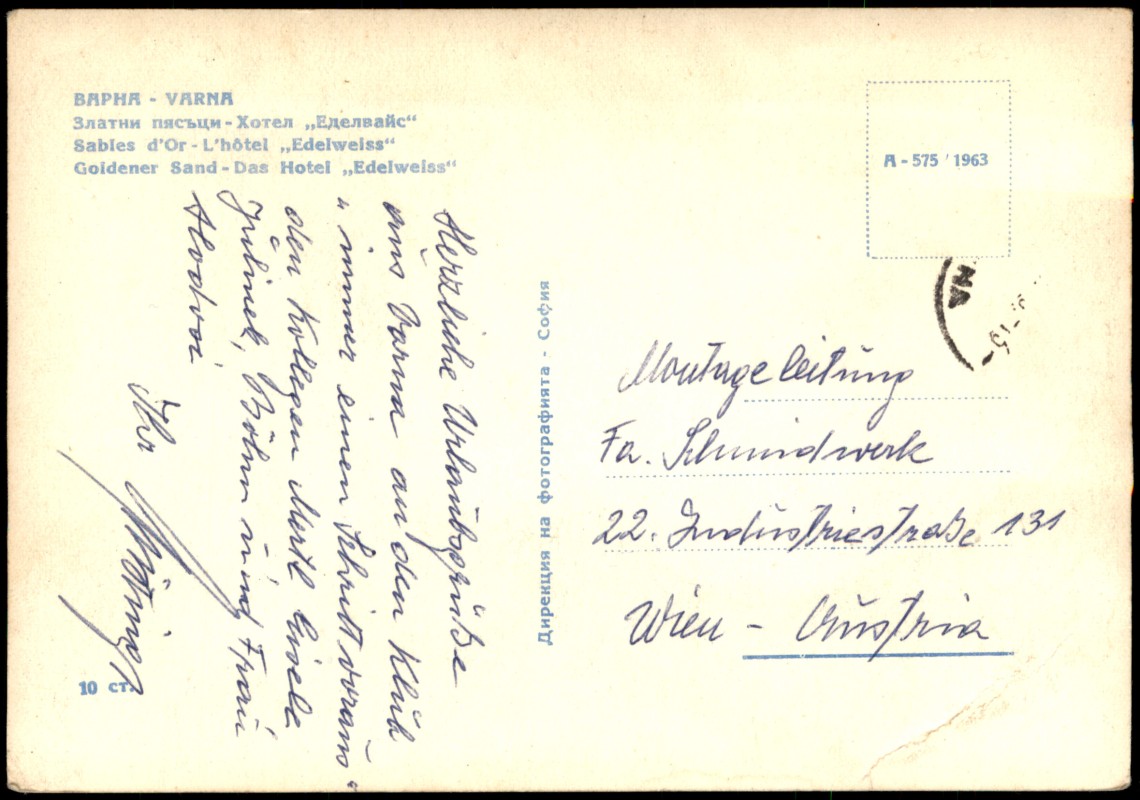 ВАРНА - VARNA
Златни пясъци - Хотел „Еделвайс“
Sables d'Or - L'hôtel „Edelweiss“
Goldener Sand - Das Hotel „Edelweiss“
A - 575 / 1963
NA
Herzliche Urlaubsgrüße
aus Varna an den Klub
„immer einen Schritt voraus“
den Kollegen Mertl
Böhm und Frau
Ihr
Дирекция на фотографията - София
Montageleitung
Fa. Schmidwerk
22. Industriestraße 131
Wien - Austria
10 ст.